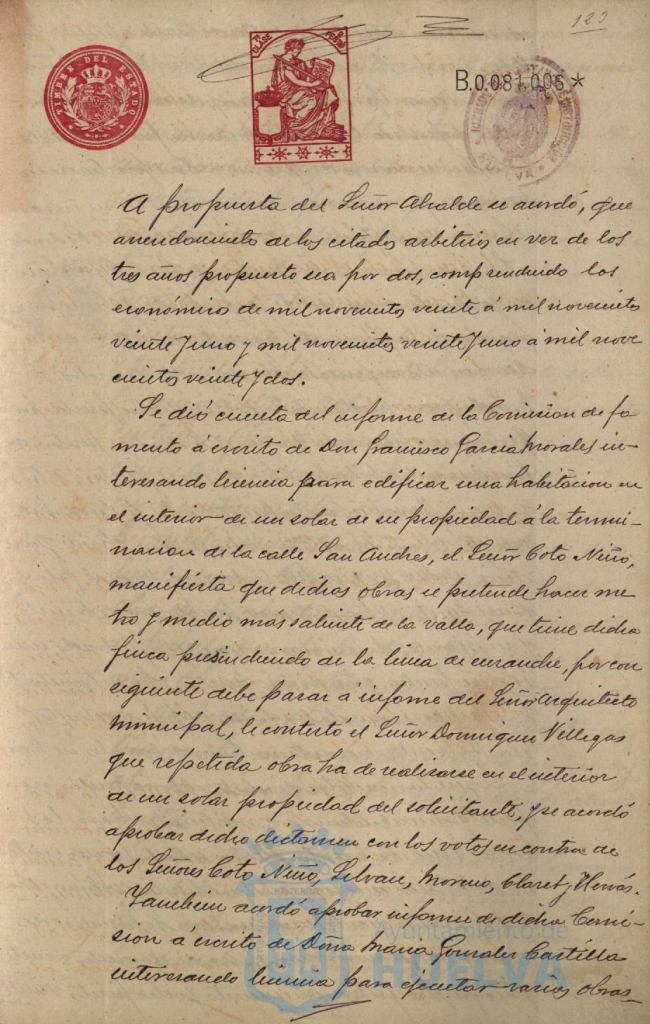 123
TIMBRE DEL ESTADO
CLASE
B.0.081.006*
HUELVA
A propuesta del Señor Alcalde se acordó, que
arrendamiento de los citados arbitrios en vez de los
tres años propuesto sea por dos, comprendiendo los
económicos de mil novecientos veinte á mil novecientos
veinte y uno y mil novecientos veinte y uno á mil nove
cientos veinte y dos.
Se dió cuenta del informe de la Comision de fo
mento á escrito de Don Francisco Garcia Morales in-
teresando licencia para edificar una habitacion en
el interior de un solar de su propiedad á la termi-
nacion de la calle San Andres, el Señor Coto Niño,
manifiesta que dichas obras se pretende hacer me
tro y medio más saliente de la valla, que tiene dicha
finca prescindiendo de la linea de ensanche, por con
siguiente debe pasar á informe del Señor Arquitecto
municipal, le contestó el Señor Dominguez Villegas
que repetida obra ha de realizarse en el interior
de un solar propiedad del solicitante, y se acordó
aprobar dicho dictamen con los votos en contra de
los Señores Coto Niño, Silvan, Moreno, Claret y Hervás.
Tambien acordó aprobar informe de dicha Comi-
sion á escrito de Doña Maria Gonzalez Castilla
interesando licencia para ejecutar varias obras
Ayuntamiento de
HUELVA